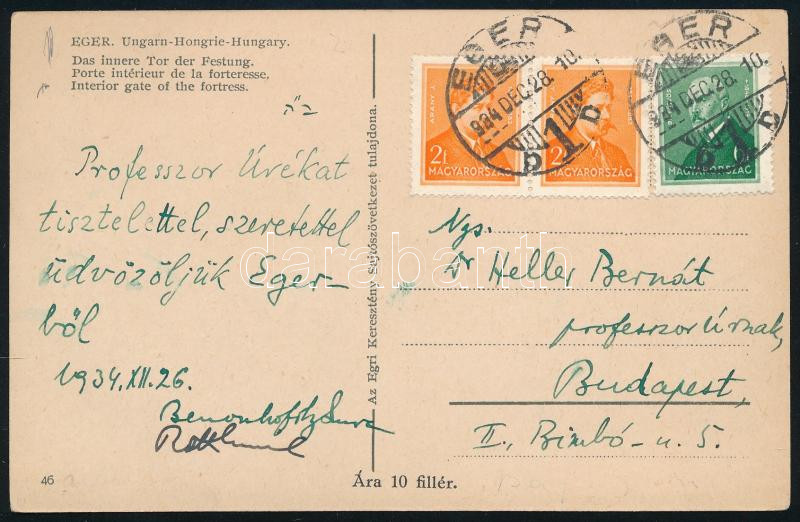 EGER. Ungarn-Hongrie-Hungary.
Das innere Tor der Festung.
Porte intérieur de la forteresse.
Interior gate of the fortress.
Professzor Úrékat
tisztelettel, szeretettel
üdvözöljük Eger-
ből
1934.XII.26.
46
Az Egri Keresztény Sajtószövetkezet tulajdona.
Ára 10 fillér.
EGER
934 DEC. 28. 10
EGER
934 DEC. 28. 10
ARANY J.
2f
MAGYARORSZÁG
2f
MAGYARORSZÁG
6f
MAGYARORSZÁG
darabanth
Ngs.
Dr Heller Bernát
professzor Úrnak,
Budapest,
II., Bimbó-u. 5.